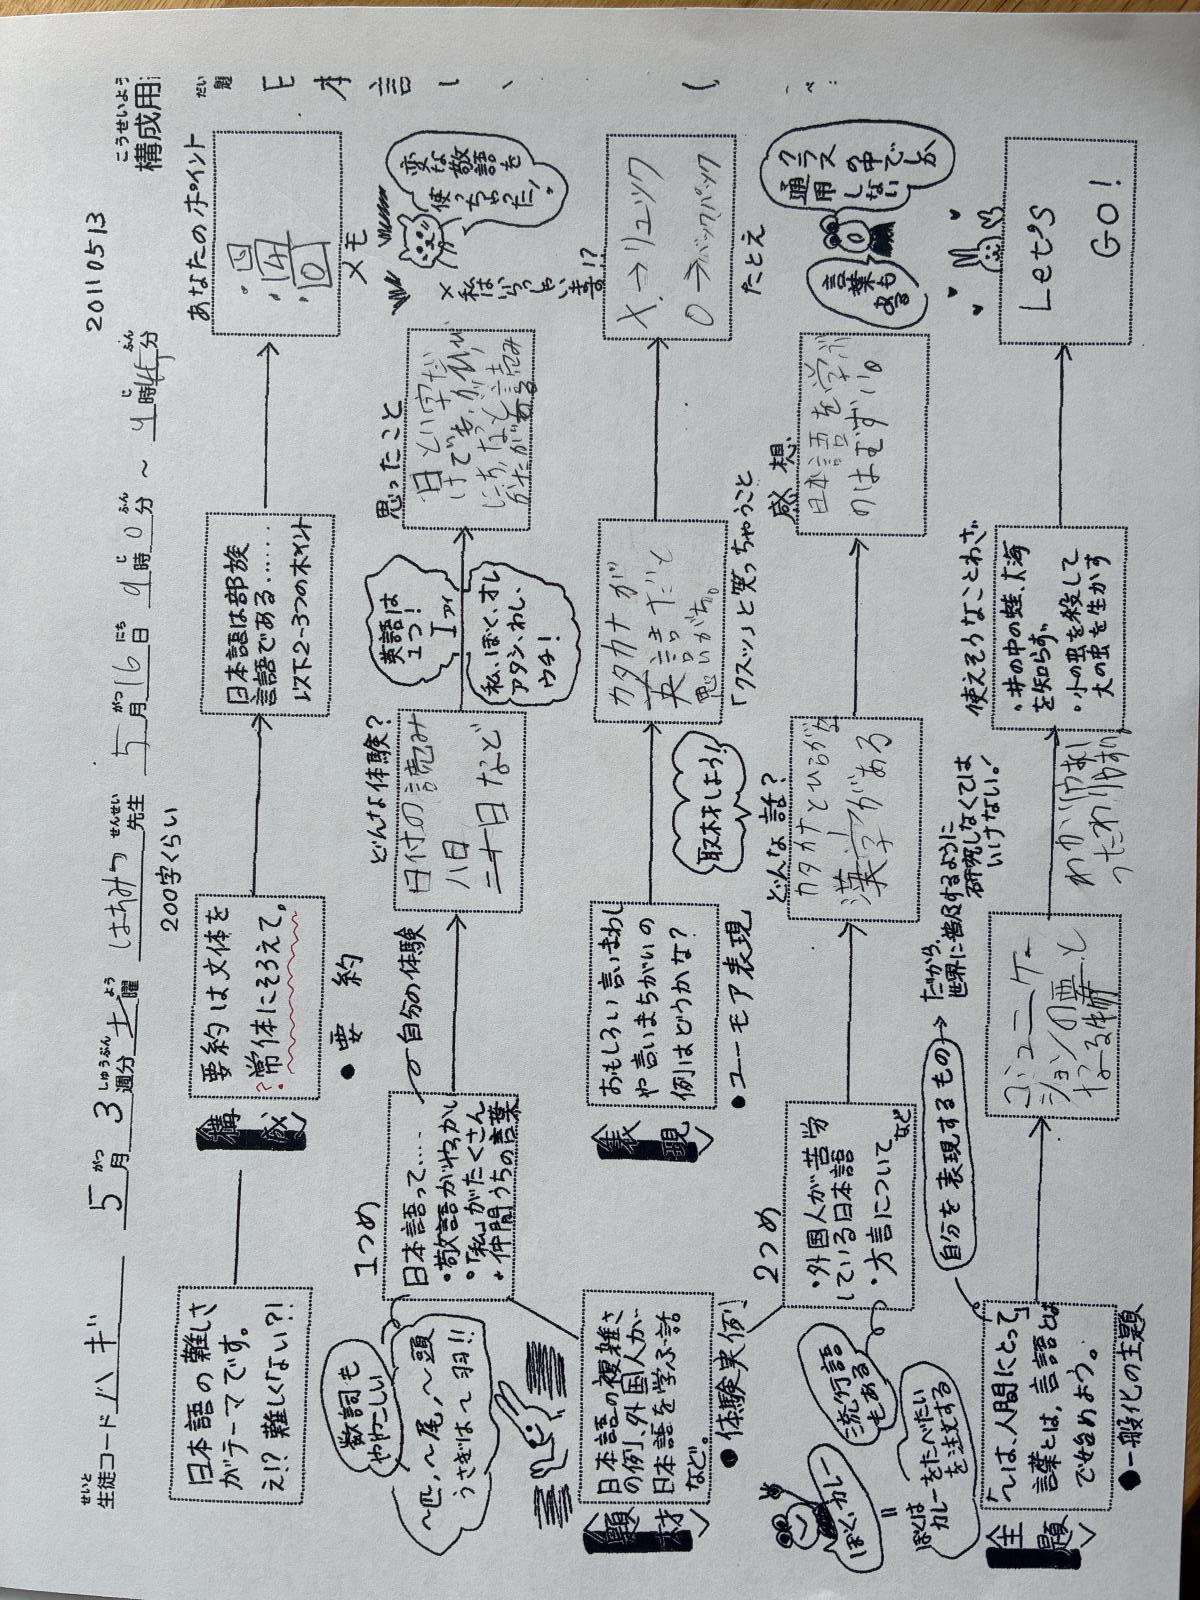 こうせいよう
構成用
だい
題
日本語
20110513
せいと
生徒コード ハギ
がつ しゅうぶん よう
5月3週分土曜
せんせい
はあみ 先生
がつ にち じ ふん じ ふん
5月16日9時0分～9時45分
日本語の難しさ
がテーマです。
え!?難しくない?!
〈構成〉
要約は文体を
常体にそろえて。
●要約
200字くらい
日本語は部族
言語である……
以下2～3つのポイント
あなたのポイント
メモ
1つめ
日本語って……
・敬語がむつかし
・「私」がたくさん
・仲間うちの言葉
数詞も
ややこしい
～匹、～尾、～頭
うさぎは～羽!!
自分の体験
どんな体験?
日付の読み
八日
二十日など
英語は
1つ!
I アイ
私、ぼく、オレ
アタシ、わし、
ウチ!
思ったこと
日という字だ
けでも、
にち、など読み
かたがある
変な敬語を
使っちゃった!
×私はいらっしゃいます!?
〈題材〉
日本語の複雑さ
の例、外国人が
日本語を学ぶ話
など。
●体験実例
〈表現〉
おもしろい言いまわし
や言いまちがいの
例はどうかな?
●ユーモア表現
取材しよう!
カタカナが
英語だと
思いがち。
「クスッ」と笑っちゃうこと
X→リュック
○→バックパック
たとえ
2つめ
・外国人が苦労
している日本語
・方言について
など
流行語
もある
ぼく、カレー
=
ぼくは
カレーをたべたい
を注文する
どんな話?
カタカナとひらがな
漢字がある
感想
日本語を学ぶ
のはむずい。
クラスの中でしか
通用しない
言葉もある
〈主題〉
「～は、人間にとって」
言葉とは、言語とは
で始めよう。
●一般化の主題
自分を表現するもの
→だから、
世界に普及するように
研究しなくては
いけない!
コミュニケー
ションの要と
なる物
使えそうなことわざ
・井の中の蛙、大海
を知らず
・小の虫を殺して
大の虫を生かす
Let's
GO!